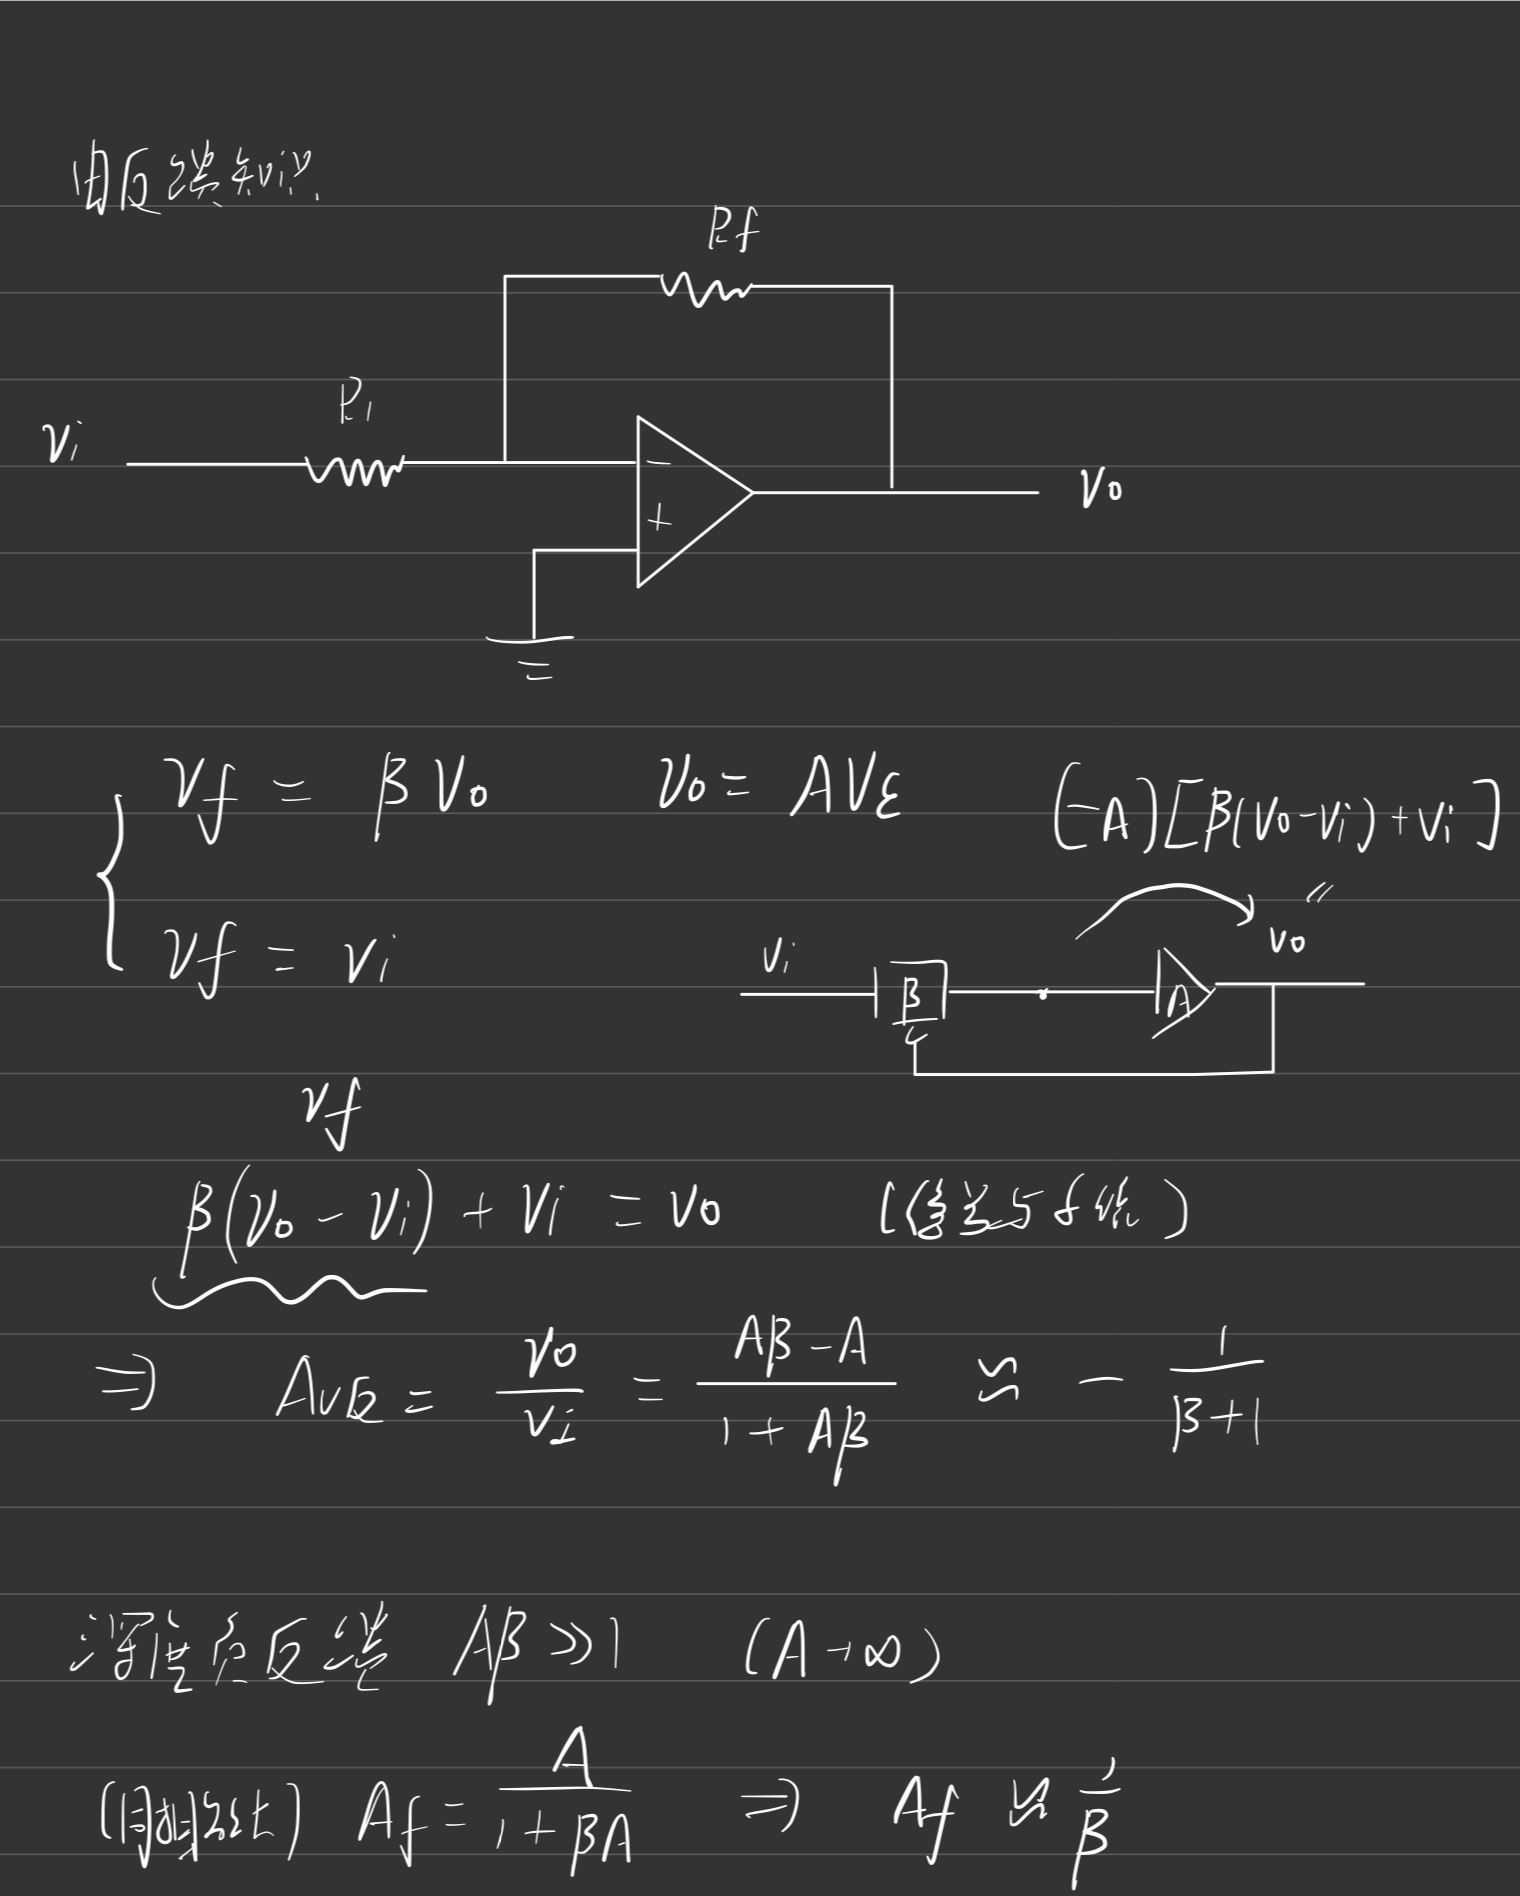 由反馈知识.
Rf
R1
Vi
−
+
Vo
Vf = βVo Vo = AVε (−A)[β(Vo−Vi)+Vi]
Vf = Vi
〃
Vi β A Vo
Vf
β(Vo − Vi) + Vi = Vo (信号与系统)
⇒ Av反 = Vo/Vi = (Aβ−A)/(1+Aβ) ≈ − 1/(β+1)
深度负反馈 Aβ≫1 (A→∞)
(同相端) Af = A/(1+βA) ⇒ Af ≈ 1/β